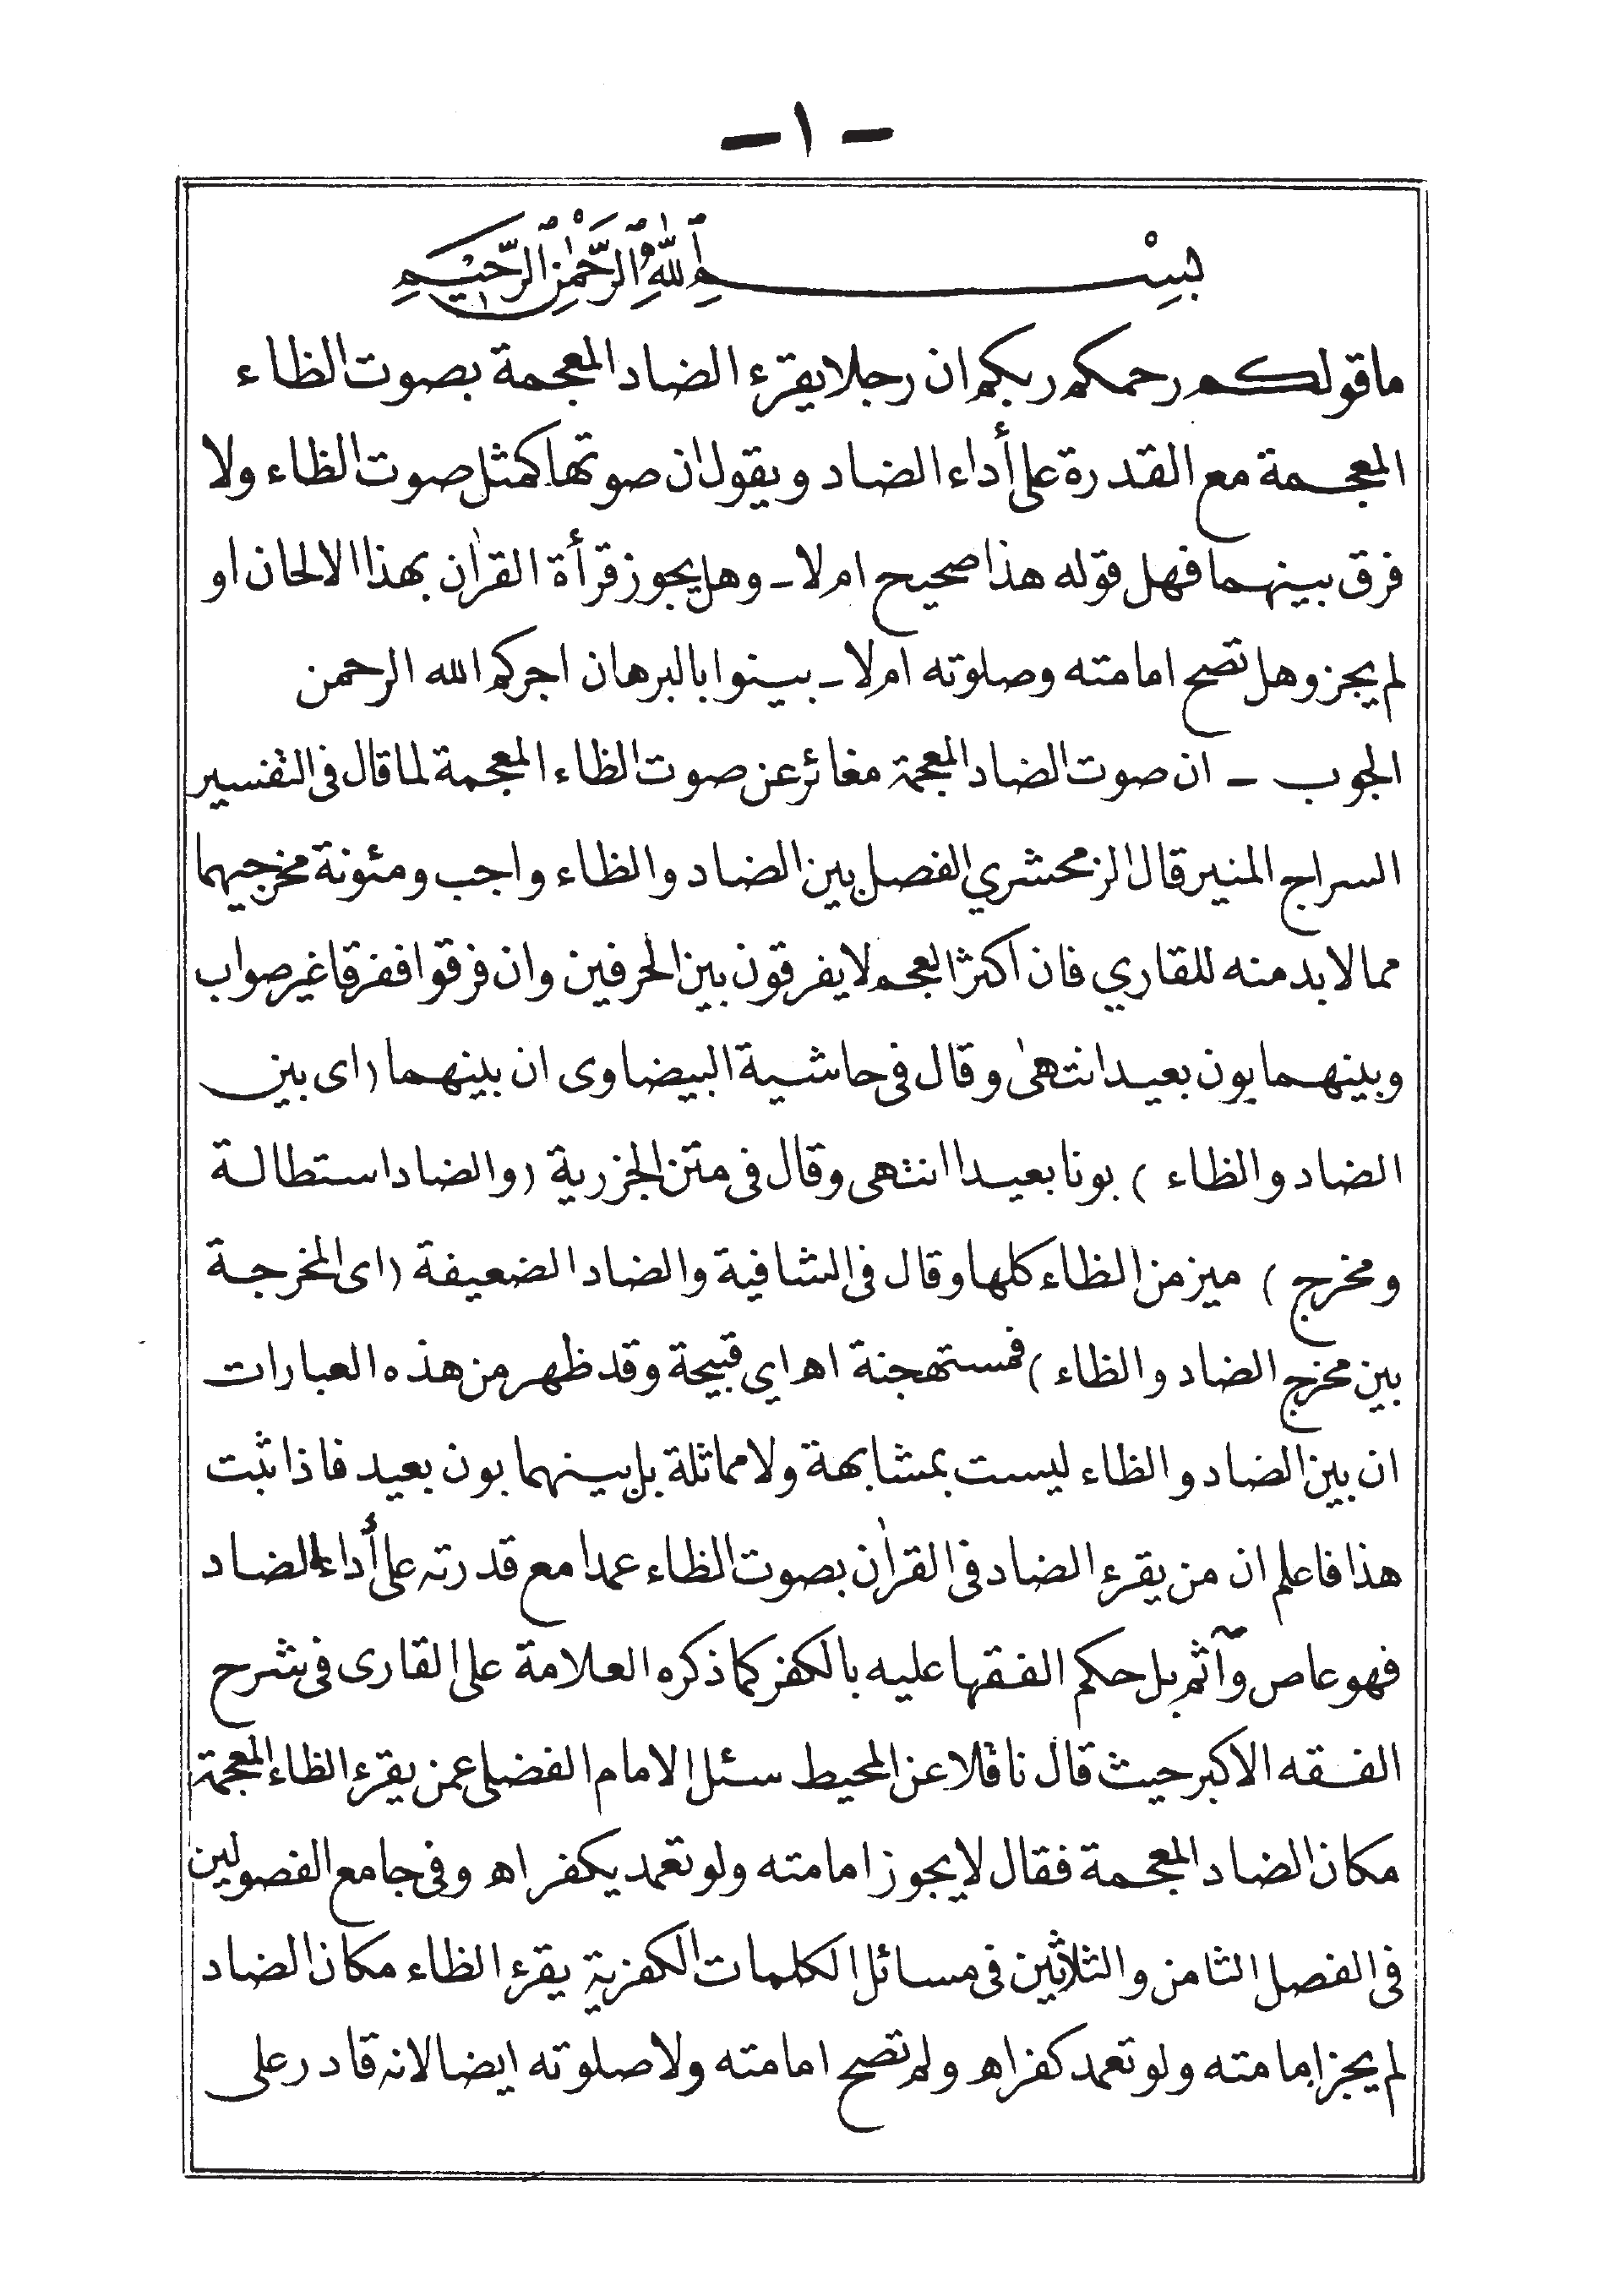 -١-
بِسْمِ اللهِ الرَّحْمٰنِ الرَّحِيْمِ
ماقولكم رحمكم ربكم ان رجلا يقرء الضاد المعجمة بصوت الظاء
المعجمة مع القدرة على أداء الضاد ويقول ان صوتها كمثل صوت الظاء ولا
فرق بينهما فهل قوله هذا صحيح ام لا - وهل يجوز قرأة القرأن بهذا الالحان او
لم يجز وهل تصح امامته وصلوته ام لا - بينوا بالبرهان اجركم الله الرحمن
الجوب - ان صوت الضاد المعجمة مغائر عن صوت الظاء المعجمة لما قال فى التفسير
السراج المنير قال الزمحشري الفصل بين الضاد والظاء واجب ومئونة مخرجيهما
مما لابد منه للقاري فان اكثر العجم لا يفرقون بين الحرفين وان فرقوا ففرقا غير صواب
وبينهما بون بعيد انتهىٰ وقال فى حاشية البيضاوى ان بينهما (اى بين
الضاد والظاء ) بونا بعيدا انتهى وقال فى متن الجزرية (والضاد استطالة
ومخرج ) ميز من الظاء كلها وقال فى الشافية والضاد الضعيفة (اى المخرجة
بين مخرج الضاد والظاء ) فمستهجنة اھ اي قبيحة وقد ظهر من هذه العبارات
ان بين الضاد والظاء ليست بمشابهة ولا مماثلة بل بينهما بون بعيد فاذا ثبت
هذا فاعلم ان من يقرء الضاد فى القرأن بصوت الظاء عمدا مع قدرته على أداء الضاد
فهو عاص وآثم بل حكم الفقها عليه بالكفر كما ذكره العلامة على القارى فى شرح
الفقه الاكبر حيث قال ناقلا عن المحيط سئل الامام الفضلى عمن يقرء الظاء المعجمة
مكان الضاد المعجمة فقال لا يجوز امامته ولو تعمد يكفر اھ وفى جامع الفصولين
فى الفصل الثامن والثلاثين فى مسائل الكلمات الكفرية يقرء الظاء مكان الضاد
لم يجز امامته ولو تعمد كفر اھ ولم تصح امامته ولا صلوته ايضا لانه قادر على